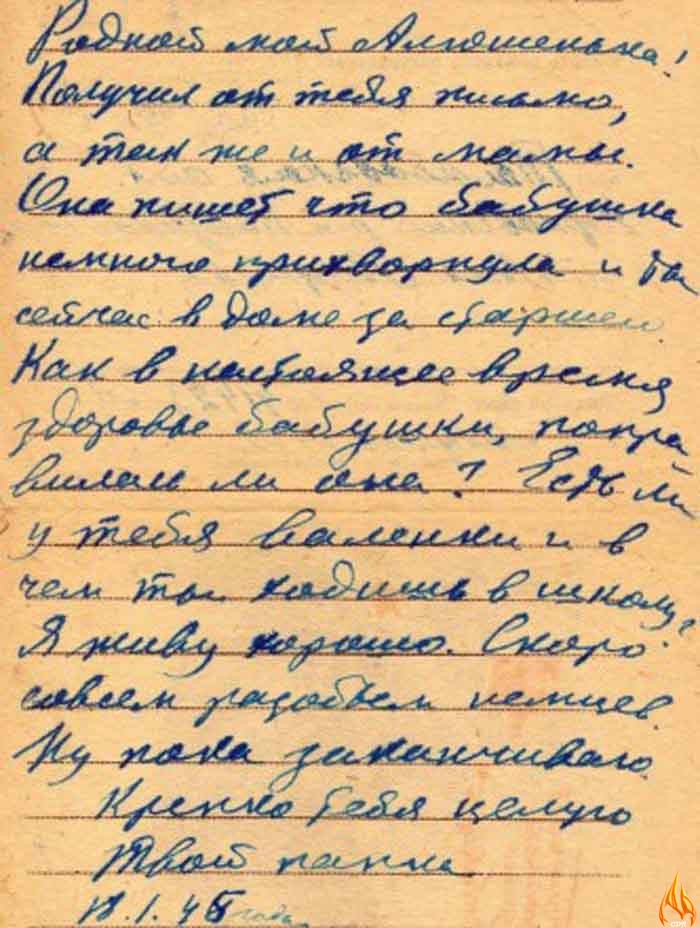 Родной мой Алюшенька!
Получил от тебя письмо,
а так же и от мамы.
Она пишет что бабушка
немного прихворнула и ты
сейчас в доме за старшего
Как в настоящее время
здоровье бабушки, попра
вилась ли она? Есть ли
у тебя валенки и в
чем ты ходишь в школу?
Я живу хорошо. Скоро
совсем разобьем немцев.
Ну пока заканчиваю
Крепко тебя целую
Твой папка
.1.45 года